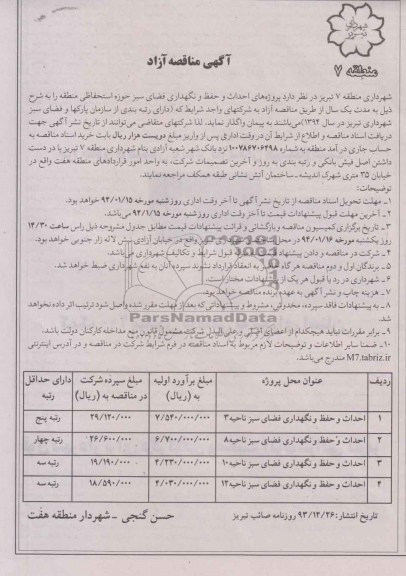 شهرداری تبریز
منطقه ۷
آگهی مناقصه آزاد
شهرداری منطقه ۷ تبریز در نظر دارد پروژه‌های احداث و حفظ و نگهداری فضای سبز حوزه استحفاظی منطقه را به شرح
ذیل به مدت یک سال از طریق مناقصه آزاد به شرکتهای واجد شرایط که (دارای رتبه بندی از سازمان پارکها و فضای سبز
شهرداری تبریز در سال ۱۳۹۴)می‌باشند به پیمان واگذار نماید. لذا شرکتهای متقاضی می‌توانند از تاریخ نشر آگهی جهت
دریافت اسناد مناقصه و اطلاع از شرایط آن در وقت اداری پس از واریز مبلغ دویست هزار ریال بابت خرید اسناد مناقصه به
حساب جاری در آمد منطقه به شماره ۱۰۰۷۸۶۷۰۶۲۹۸ نزد بانک شهر شعبه آزادی بنام شهرداری منطقه ۷ تبریز با در دست
داشتن اصل فیش بانکی و رتبه بندی به روز و آخرین تصمیمات شرکت، به واحد امور قراردادهای منطقه هفت واقع در
خیابان ۳۵ متری شهرک اندیشه-ساختمان آتش نشانی طبقه همکف مراجعه نمایند.
توضیحات:
۱- مهلت تحویل اسناد مناقصه از تاریخ نشر آگهی تا آخر وقت اداری روز شنبه مورخه ۹۴/۰۱/۱۵ خواهد بود.
۲- آخرین مهلت قبول پیشنهادات قیمت تا آخر وقت اداری روز شنبه مورخه ۹۴/۱/۱۵ می‌باشد.
۳- تاریخ برگزاری کمیسیون مناقصه و بازگشائی و قرائت پیشنهادات قیمت مطابق جدول مشروحه ذیل راس ساعت ۱۴/۳۰
روز یکشنبه مورخه ۹۴/۰۱/۱۶ در محل واقع در خیابان آزادی نبش لاله زار جنوبی خواهد بود.
۴- شرکت در مناقصه و دادن پیشنهاد قبول شرایط و تکالیف شهرداری می‌باشد.
۵- برندگان اول و دوم مناقصه هر گاه حاضر به انعقاد قرارداد نشوند سپرده آنان به نفع شهرداری ضبط خواهد شد.
۶- شهرداری در رد یا قبول هر یک از پیشنهادات مختار است.
۷- هزینه چاپ و نشر آگهی به عهده برنده مناقصه خواهد بود.
۸- به پیشنهادات فاقد سپرده، مخدوش، مشروط و پیشنهاداتی که بعد از مهلت مقرر شده واصل شود ترتیب اثر داده نخواهد
شد.
۹- برابر مقررات نباید هیچکدام از اعضای اصلی و علی البدل شرکت مشمول قانون منع مداخله کارکنان دولت باشد.
۱۰- ضمنا سایر اطلاعات و توضیحات لازم مربوط به اسناد مناقصه در فرم شرایط شرکت در مناقصه و در آدرس اینترنتی
M7.tabriz.ir مندرج می‌باشد.
ردیف عنوان محل پروژه مبلغ برآورد اولیه به (ریال) مبلغ سپرده شرکت در مناقصه به (ریال) دارای حداقل رتبه
۱ احداث و حفظ و نگهداری فضای سبز ناحیه۳ ۷/۵۴۰/۰۰۰/۰۰۰ ۲۹/۱۲۰/۰۰۰ رتبه پنج
۲ احداث و حفظ و نگهداری فضای سبز ناحیه۸ ۶/۷۰۰/۰۰۰/۰۰۰ ۲۶/۶۰۰/۰۰۰ رتبه چهار
۳ احداث و حفظ و نگهداری فضای سبز ناحیه۱۰ ۴/۲۳۰/۰۰۰/۰۰۰ ۱۹/۱۹۰/۰۰۰ رتبه سه
۴ احداث و حفظ و نگهداری فضای سبز ناحیه۱۲ ۴/۰۳۰/۰۰۰/۰۰۰ ۱۸/۵۹۰/۰۰۰ رتبه سه
تاریخ انتشار: ۹۳/۱۲/۲۶ روزنامه صائب تبریز
حسن گنجی - شهردار منطقه هفت
ParsNamadData